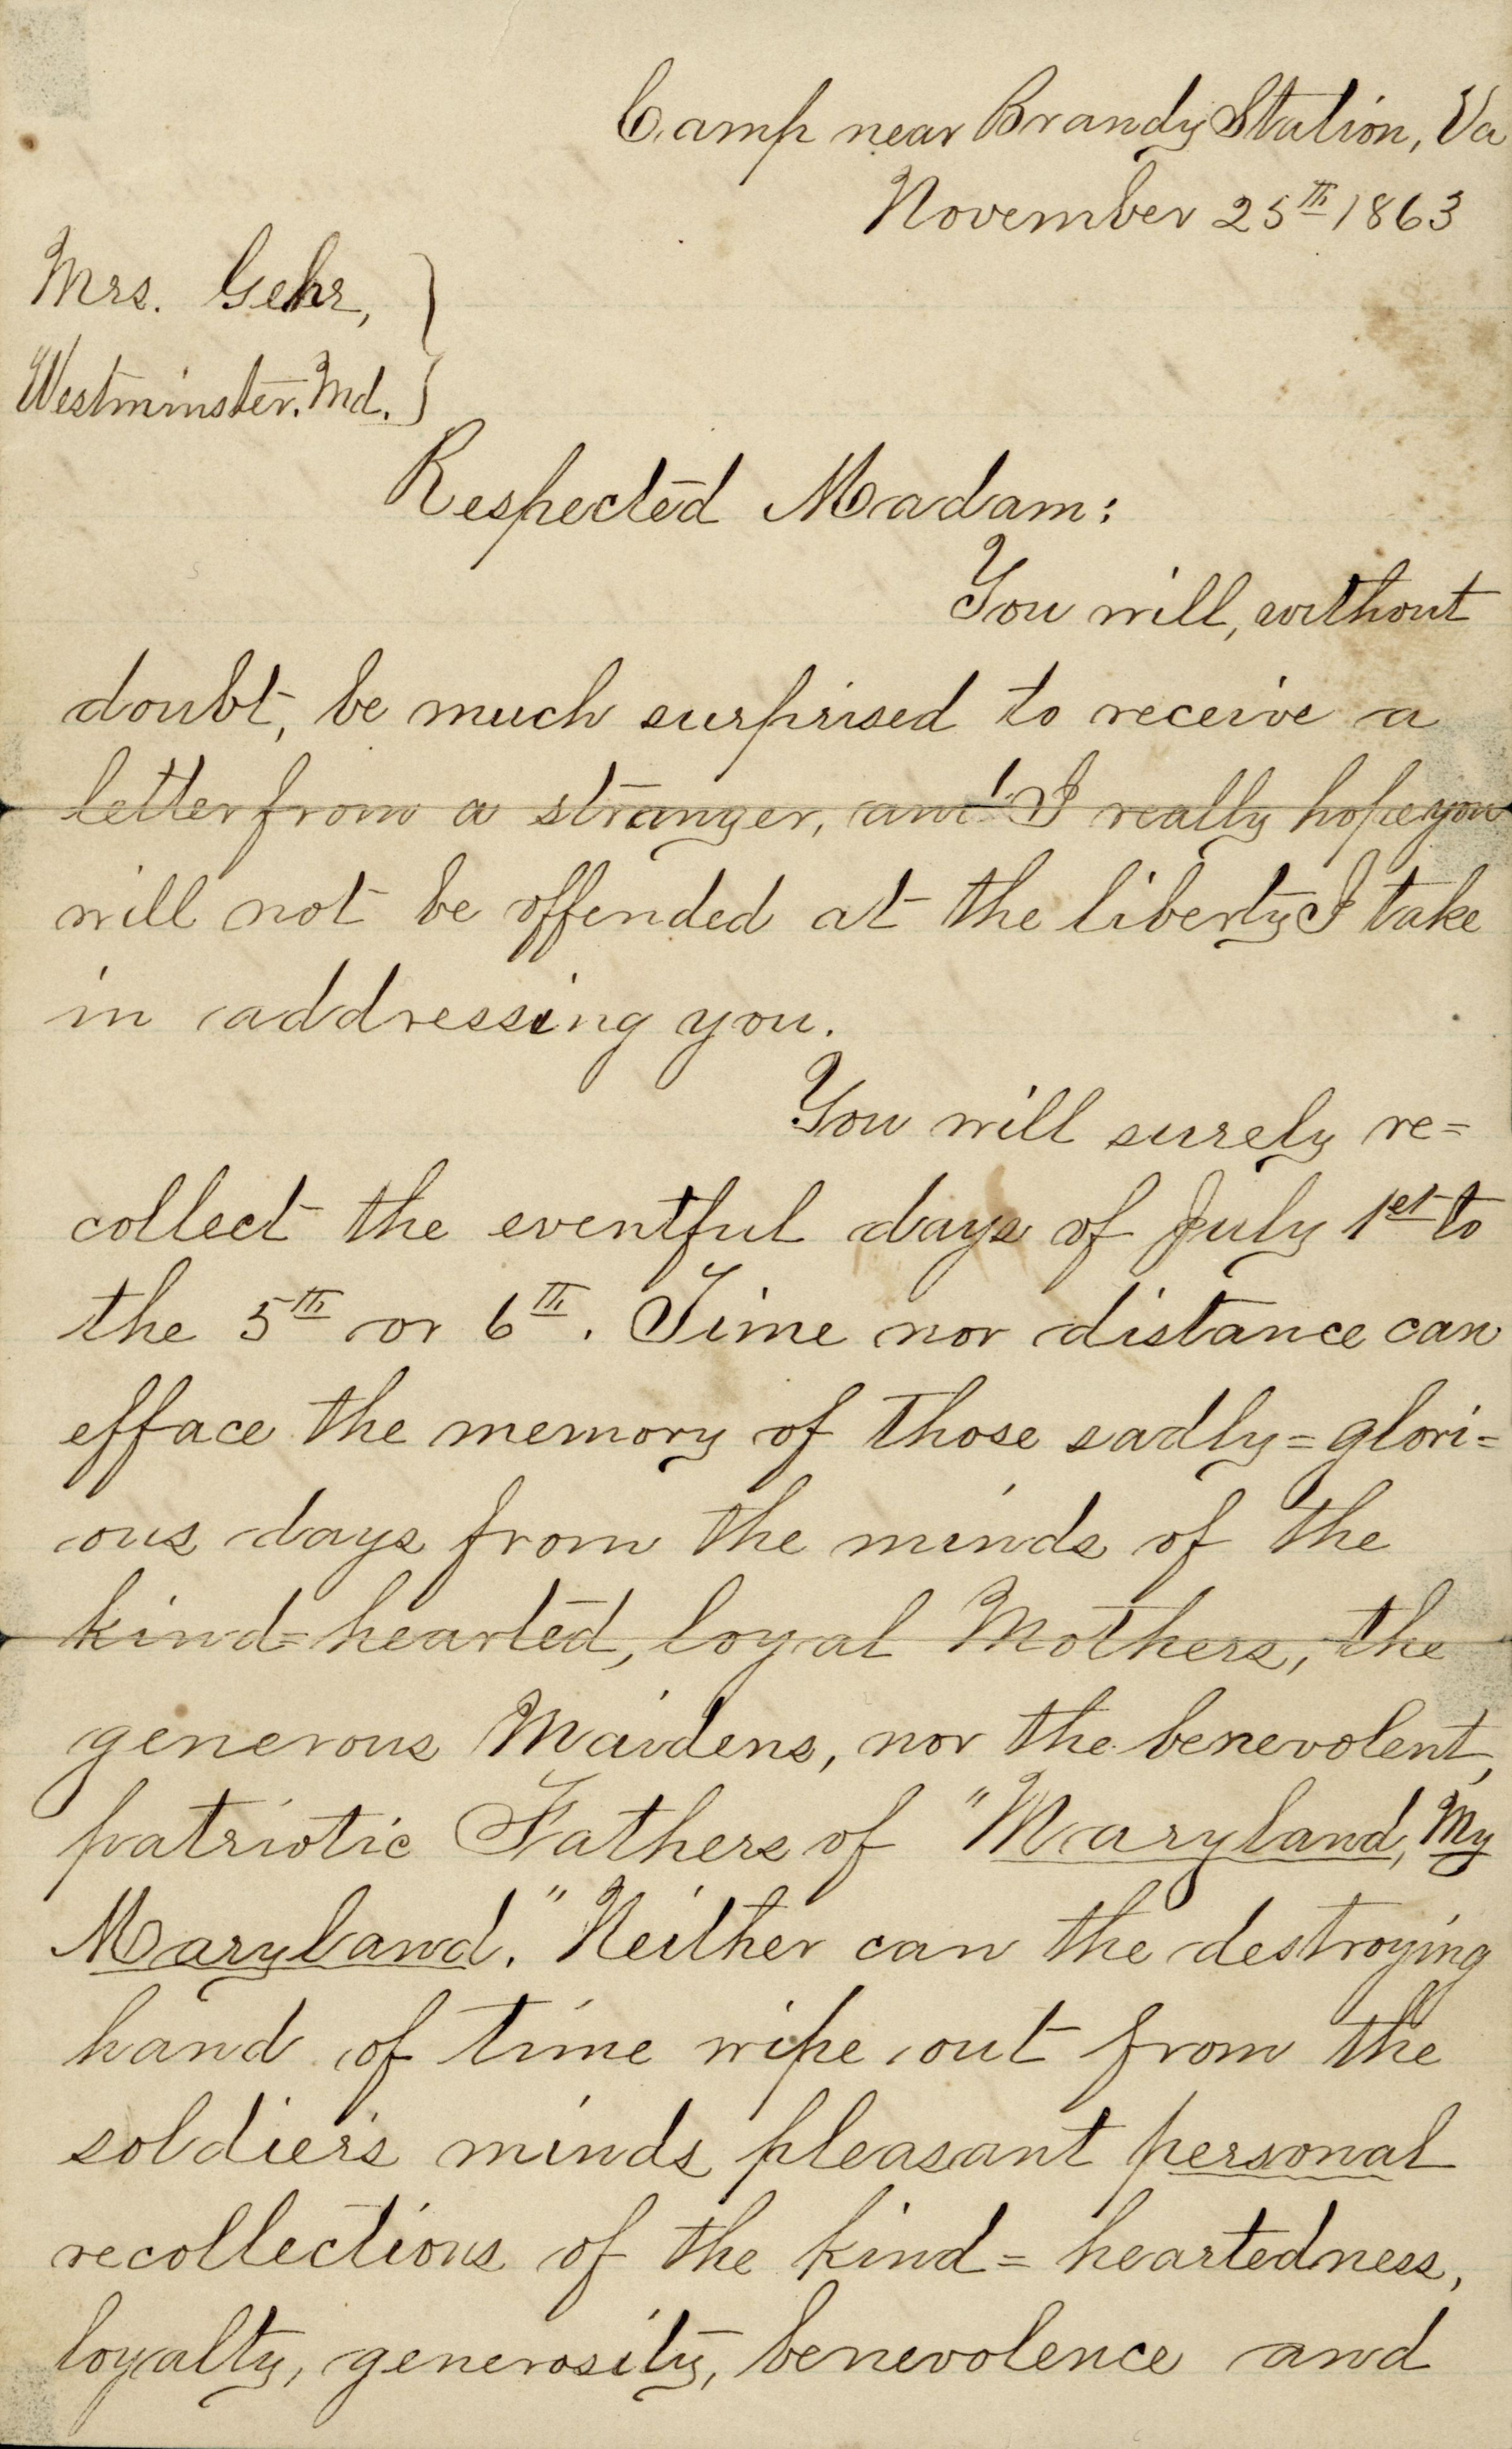 Camp near Brandy Station, Va
November 25th 1863
Mrs. Gehr,
Westminster. Md.
Respected Madam:
You will, without
doubt, be much surprised to receive a
letter from a stranger, and I really hope you
will not be offended at the liberty I take
in addressing you.
You will surely re=
collect the eventful days of July 1st to
the 5th or 6th. Time nor distance can
efface the memory of those sadly=glori=
ous days from the minds of the
kind=hearted, loyal Mothers, the
generous Maidens, nor the benevolent,
patriotic Fathers of "Maryland, My
Maryland." Neither can the destroying
hand of time wipe out from the
soldier's minds pleasant personal
recollections of the kind=heartedness,
loyalty, generosity, benevolence and